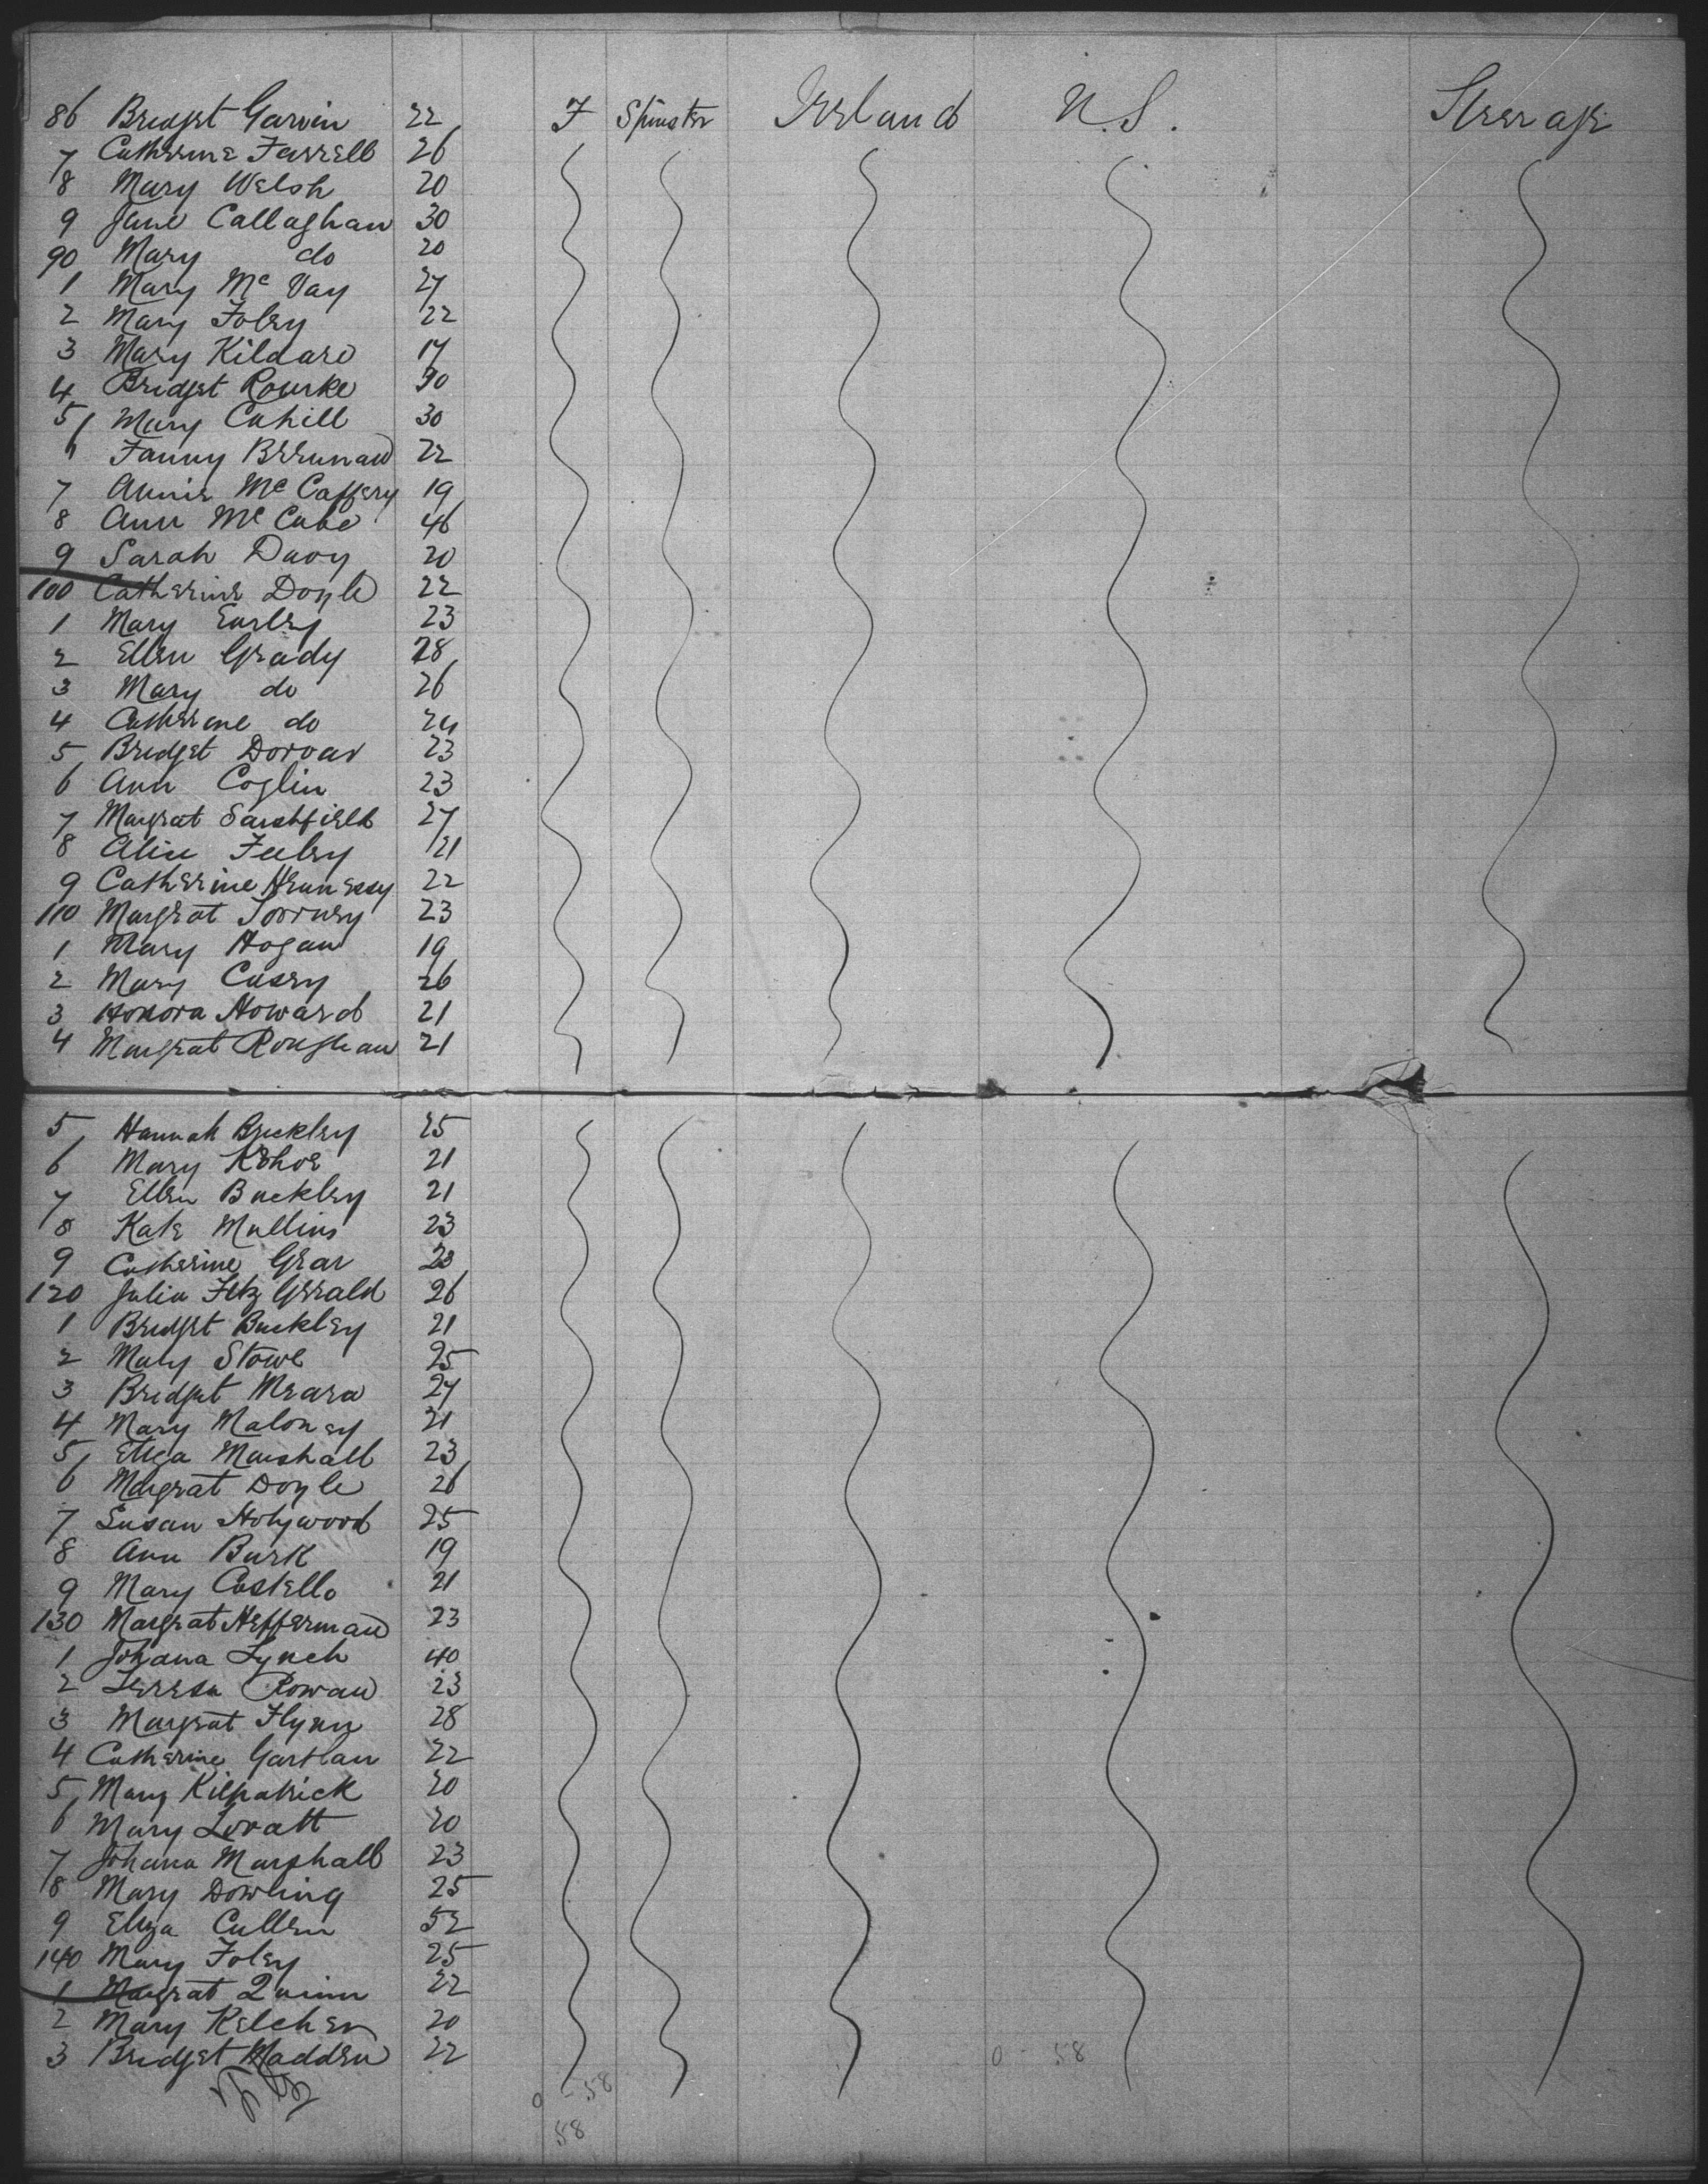 86 Bridget Garvin 22 F Spinster Ireland U.S. Steerage
7 Catherine Farrell 26
8 Mary Welsh 20
9 Jane Callaghan 30
90 Mary do 20
1 Mary Mc Vay 27
2 Mary Foley 22
3 Mary Kildare 17
4 Bridget Rourke 30
5 Mary Cahill 30
6 Fanny Brennan 22
7 Annie Mc Caffery 19
8 Ann Mc Cabe 46
9 Sarah Davy 20
100 Catherine Doyle 22
1 Mary Earley 23
2 Ellen Grady 28
3 Mary do 26
4 Catherine do 24
5 Bridget Dorvan 23
6 Ann Coglin 23
7 Margrat Sarshfield 27
8 Alice Feeley 21
9 Catherine Hennessy 22
110 Margrat 23
1 Mary Hogan 19
2 Mary Casey 26
3 Honora Howard 21
4 Margrat Roughan 21
5 Hannah Brickley 25
6 Mary Kehoe 21
7 Ellen Buckley 21
8 Kate Mullins 23
9 Catherine Grar 23
120 Julia Fitz Gerald 26
1 Bridget Buckley 21
2 Mary Stowe 25
3 Bridget Meara 27
4 Mary Maloney 21
5 Eliza Marshall 23
6 Margrat Doyle 26
7 Susan Holywood 25
8 Ann Burk 19
9 Mary Costello 21
130 Margrat Hefferman 23
1 Johana Lynch 40
2 Teresa Rowan 23
3 Margrat Flynn 28
4 Catherine Gartlan 22
5 Mary Kilpatrick 20
6 Mary Lovatt 20
7 Johana Marshall 23
8 Mary Dowling 25
9 Eliza Cullen 52
140 Mary Foley 25
1 Margrat Quinn 22
2 Mary Kelcher 20
3 Bridget Madden 22
0 - 58
0 - 58
58